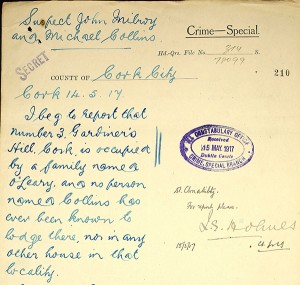 Suspect John Milroy
and Michael Collins
Crime—Special.
SECRET
Hd.-Qrs. File No. S.
COUNTY OF Cork City
210
Cork 14.5.17
I beg to report that
number 3, Gardiner's
Hill, Cork is occupied
by a family named
O'Leary, and no person
named Collins has
ever been known to
lodge there, nor in any
other house in that
locality.
R.I. CONSTABULARY OFFICE
Received
15 MAY 1917
Dublin Castle
CRIME SPECIAL BRANCH
For report please.
15/5/17